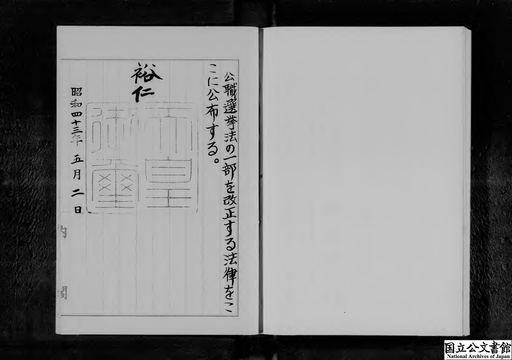 公職選挙法の一部を改正する法律をこ
こに公布する。
裕仁
天皇
御璽
昭和四十三年五月二日
国立公文書館
National Archives of Japan